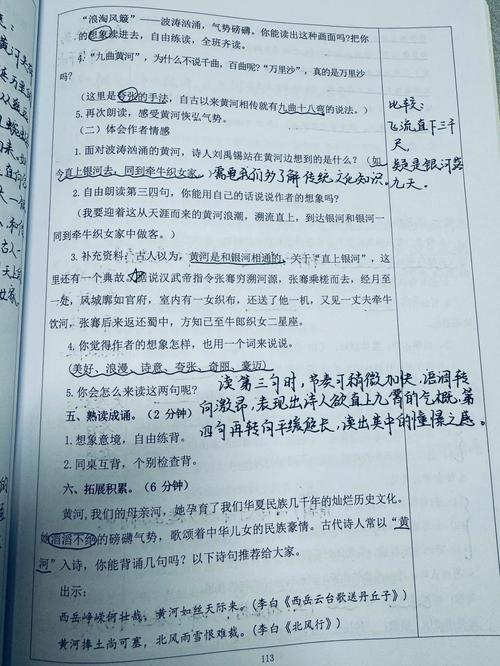 "浪淘风簸"——波涛汹涌，气势磅礴。你能读出这种画面吗?把你
的想象读进去，自由练读，全班齐读。
4."九曲黄河"，为什么不说千曲，百曲呢?"万里沙"，真的是万里沙
吗?
(这里是夸张的手法，自古以来黄河相传就有九曲十八弯的说法。)
5.再次朗读，感受黄河恢弘气势。
(二)体会作者情感
1.面对波涛汹涌的黄河，诗人刘禹锡站在黄河边想到的是什么?(如
今直上银河去，同到牵牛织女家)需要我们多了解传统文化知识。
2.自由朗读第三四句，你能用自己的话说说作者的想象吗?
(我要迎着这从天涯而来的黄河浪潮，溯流直上，到达银河和银河一
同到牵牛织女家中做客。)
3.补充资料:古人以为，黄河是和银河相通的。关于"直上银河"，这
里还有一个典故，说汉武帝指令张骞穷溯河源，张骞乘槎而去，经月至
一处，风城廓如官府，室内有一女织布，还送了他一机，又见一丈夫牵牛
饮河，张骞后来返还蜀中，方知已至牛郎织女二星座。
4.你觉得作者的想象怎样，也用一个词来说说。
(美好、浪漫、诗意、夸张、奇丽、豪迈)
5.你会怎么来读这两句呢?
读第三句时，节奏可稍微加快，语调转
向激昂，表现出诗人欲直上九霄的气概，第
四句再转向平缓延长，读出其中的憧憬之感。
五、熟读成诵。(2分钟)
1.想象意境，自由练背。
2.同桌互背，个别检查背。
六、拓展积累。(6分钟)
黄河，我们的母亲河，她孕育了我们华夏民族几千年的灿烂历史文化。
她滔滔不绝的磅礴气势，歌颂着中华儿女的民族豪情。古代诗人常以"黄
河"入诗，你能背诵几句吗?以下诗句推荐给大家。
出示:
西岳峥嵘何壮哉，黄河如丝天际来。(李白《西岳云台歌送丹丘子》)
黄河捧土尚可塞，北风雨雪恨难裁。(李白《北风行》)
比较:
飞流直下三千
尺
疑是银河落
九天。
113